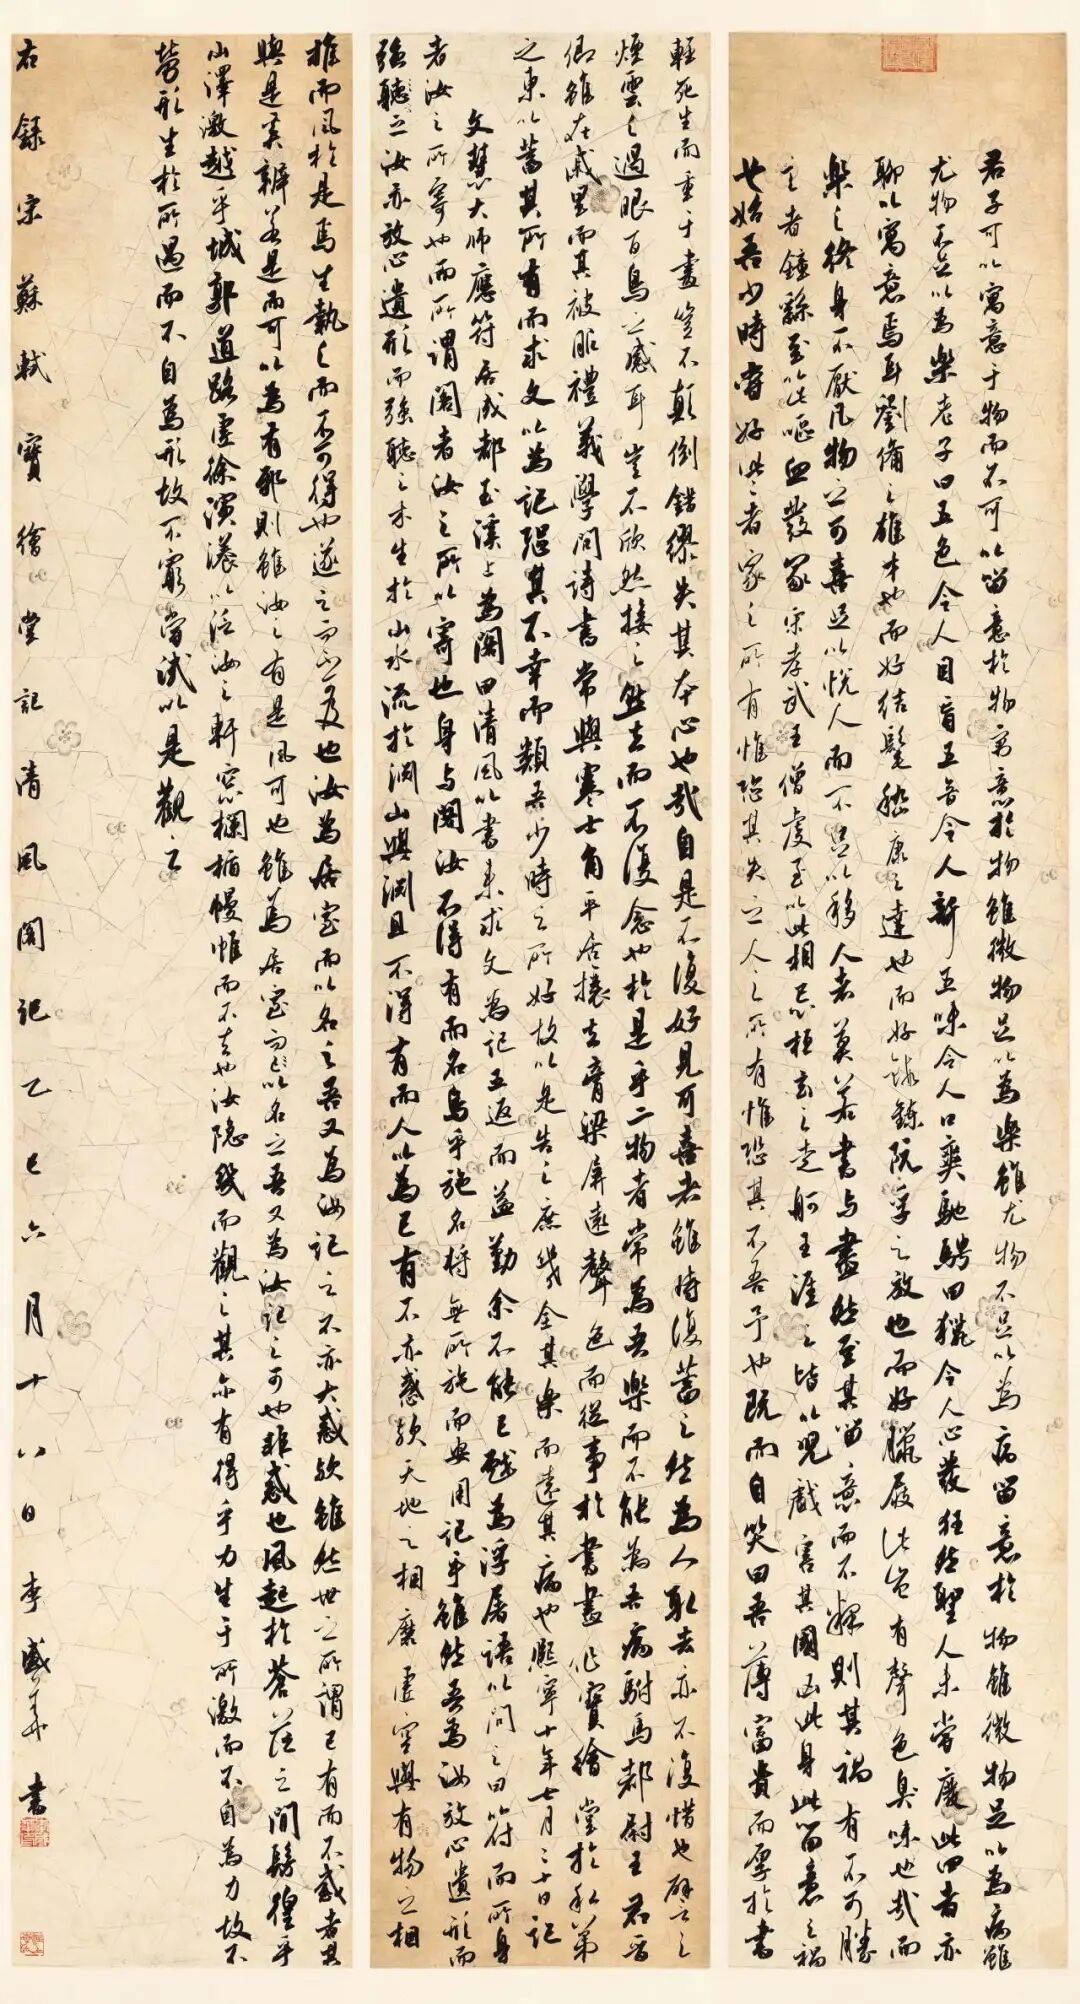 君子可以寓意于物而不可以留意於物寓意於物雖微物足以為樂雖尤物不足以為病留意於物雖微物足以為病雖
尤物不足以為樂老子曰五色令人目盲五音令人聾五味令人口爽馳騁田獵令人心發狂然聖人未嘗廢此四者亦
聊以寓意焉耳劉備之雄才也而好結髦嵇康之達也而好鍛鍊阮孚之放也而好蠟屐此豈有聲色臭味也哉而
樂之終身不厭凡物之可喜足以悅人而不足以移人者莫若書與畫然至其留意而不釋則其禍有不可勝
言者鍾繇至以此嘔血發冢宋孝武王僧虔至以此相忌桓玄之走舸王涯之皆以兒戲害其國凶此身此留意之禍
也始吾少時嘗好此二者家之所有惟恐其失之人之所有惟恐其不吾予也既而自笑曰吾薄富貴而厚於書
輕死生而重于畫豈不顛倒錯繆失其本心也哉自是不復好見可喜者雖時復蓄之然為人取去亦不復惜也譬之
煙雲之過眼百鳥之感耳豈不欣然接之然去而不復念也於是乎二物者常為吾樂而不能為吾病駙馬都尉王君晉
卿雖在戚里而其被服禮義學問詩書常與寒士角平居攘去膏粱屏遠聲色而從事於書畫作寶繪堂於私第
之東以蓄其所有而求文以為記恐其不幸而類吾少時之所好故以是告之庶幾全其樂而遠其病也熙寧十年七月二十日記
文慧大師應符居成都玉溪上為閣曰清風以書來求文為記五返而益勤余不能已戲為浮屠語以問之曰符而所身
者汝之所寄也而所謂閣者汝之所以寄也身与閣汝不得有而名烏乎施名將無所施而安用記乎雖然吾為汝放心遺形而
強聽之汝亦放心遺形而強聽之木生於山水流於淵山與淵且不得有而人以為己有不亦惑歟天地之相磨虛空與有物之相
推而風於是焉生執之而不可得也逐之而不及也汝為居室而以名之吾又為汝記之不亦大惑歟雖然世之所謂己有而不惑者其
與是奚辨若是而可以為有邪則雖汝之有是風可也雖為居室而以名之吾又為汝記之可也非惑也風起於蒼茫之間彷徨乎
山澤激越乎城郭道路虛徐演漾以泛汝之軒窓欄楯幔帷而不去也汝隱几而觀之其亦有得乎力生于所激而不自為力故不
勞形生於所遇而不自為形故不窮嘗試以是觀之
右錄宋蘇軾寶繪堂記清風閣記乙巳六月十八日李盛華書